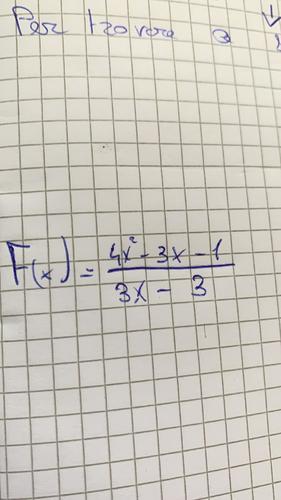 Per trovare
F(x) = 4x² - 3x - 1 / 3x - 3